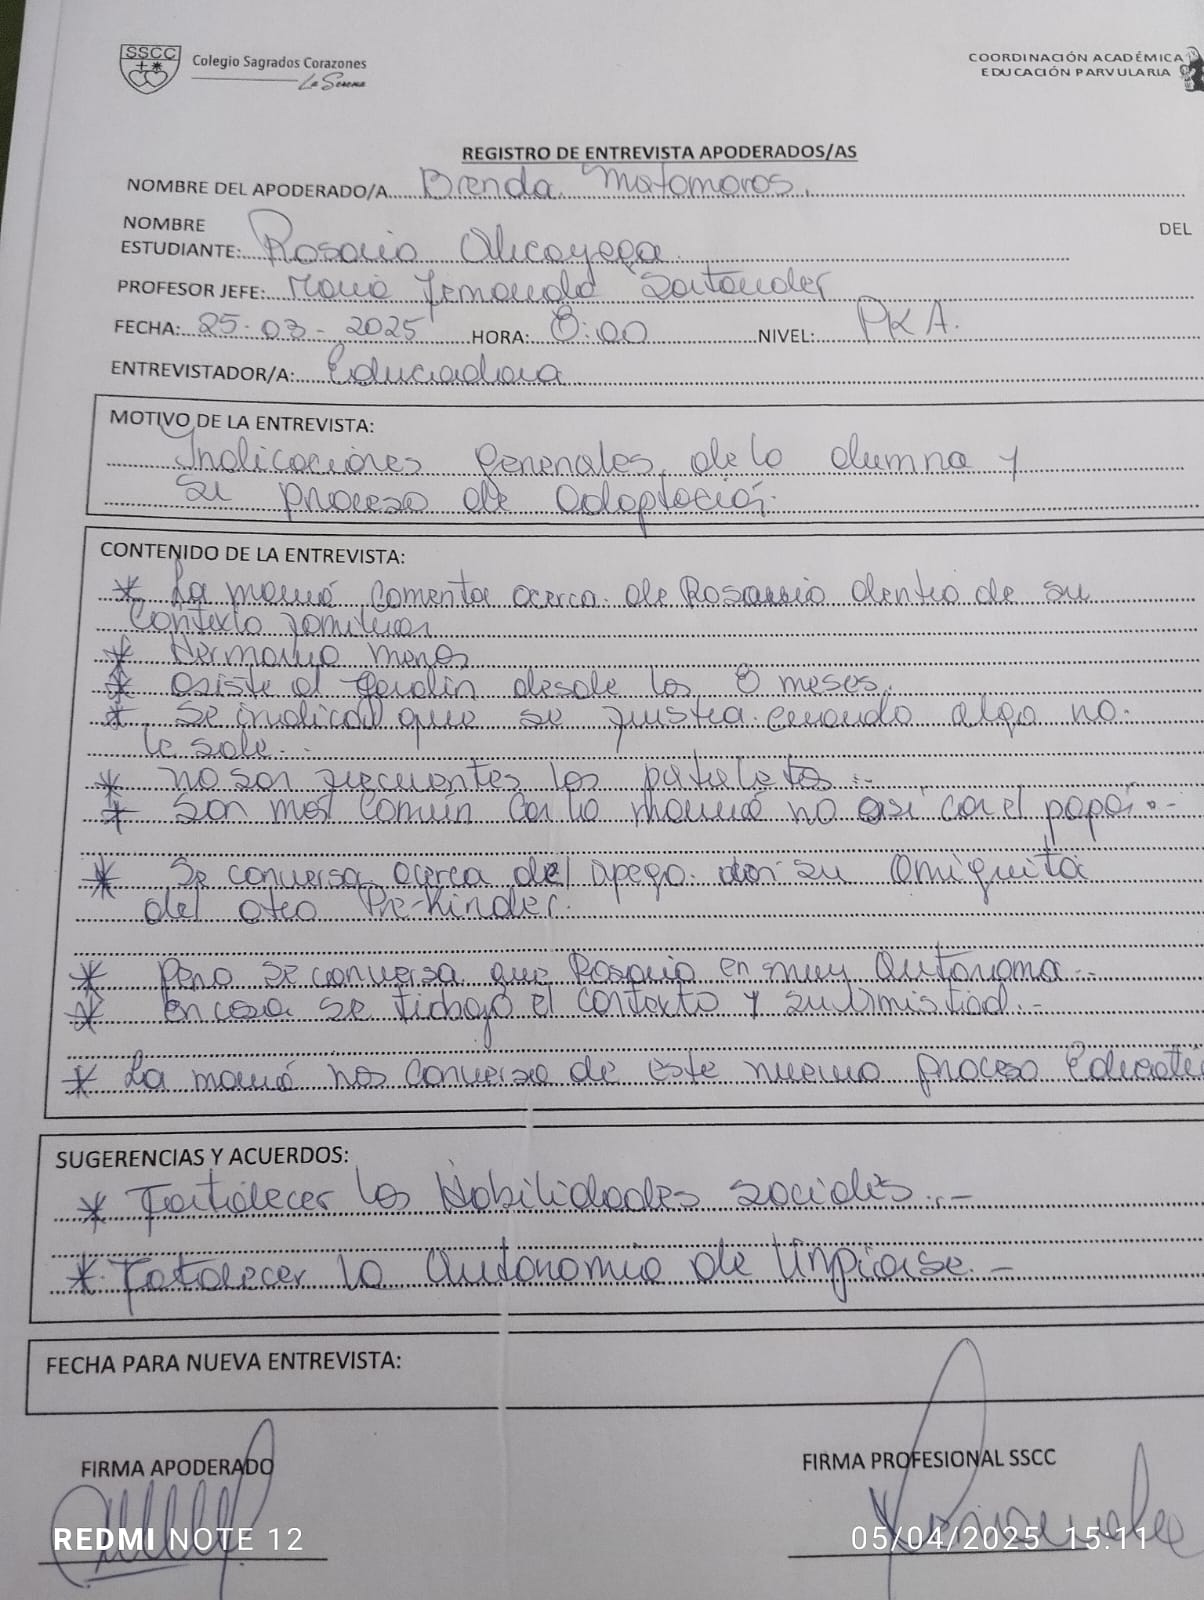 SSCC
Colegio Sagrados Corazones
La Serena
COORDINACIÓN ACADÉMICA
EDUCACIÓN PARVULARIA
REGISTRO DE ENTREVISTA APODERADOS/AS
NOMBRE DEL APODERADO/A Brenda Matamoros
NOMBRE DEL
ESTUDIANTE: Rosario
PROFESOR JEFE: Maria Fernanda Santander
FECHA: 25-03-2025 HORA: 8:00 NIVEL: PKA.
ENTREVISTADOR/A: Educadora
MOTIVO DE LA ENTREVISTA:
Indicaciones Generales de la alumna y
su proceso de adaptación.
CONTENIDO DE LA ENTREVISTA:
* La mamá comenta acerca de Rosario dentro de su
contexto familiar
* Hermano menor
* asiste al jardín desde los 8 meses.
* Se indica que se frustra cuando algo no
le sale.
* no son frecuentes las pataletas.
* Son mas común con la mamá no así con el papá.-
* Se conversa acerca del apego con su amiguita
del otro Pre-Kinder.
* Pero se conversa que Rosario es muy autónoma.
* En casa se trabajo el contexto y su amistad.-
* La mamá nos conversa de este nuevo proceso
SUGERENCIAS Y ACUERDOS:
* Fortalecer las Habilidades sociales.-
* Fortalecer la autonomia de limpiarse.-
FECHA PARA NUEVA ENTREVISTA:
FIRMA APODERADO
FIRMA PROFESIONAL SSCC
REDMI NOTE 12
05/04/2025 15:11